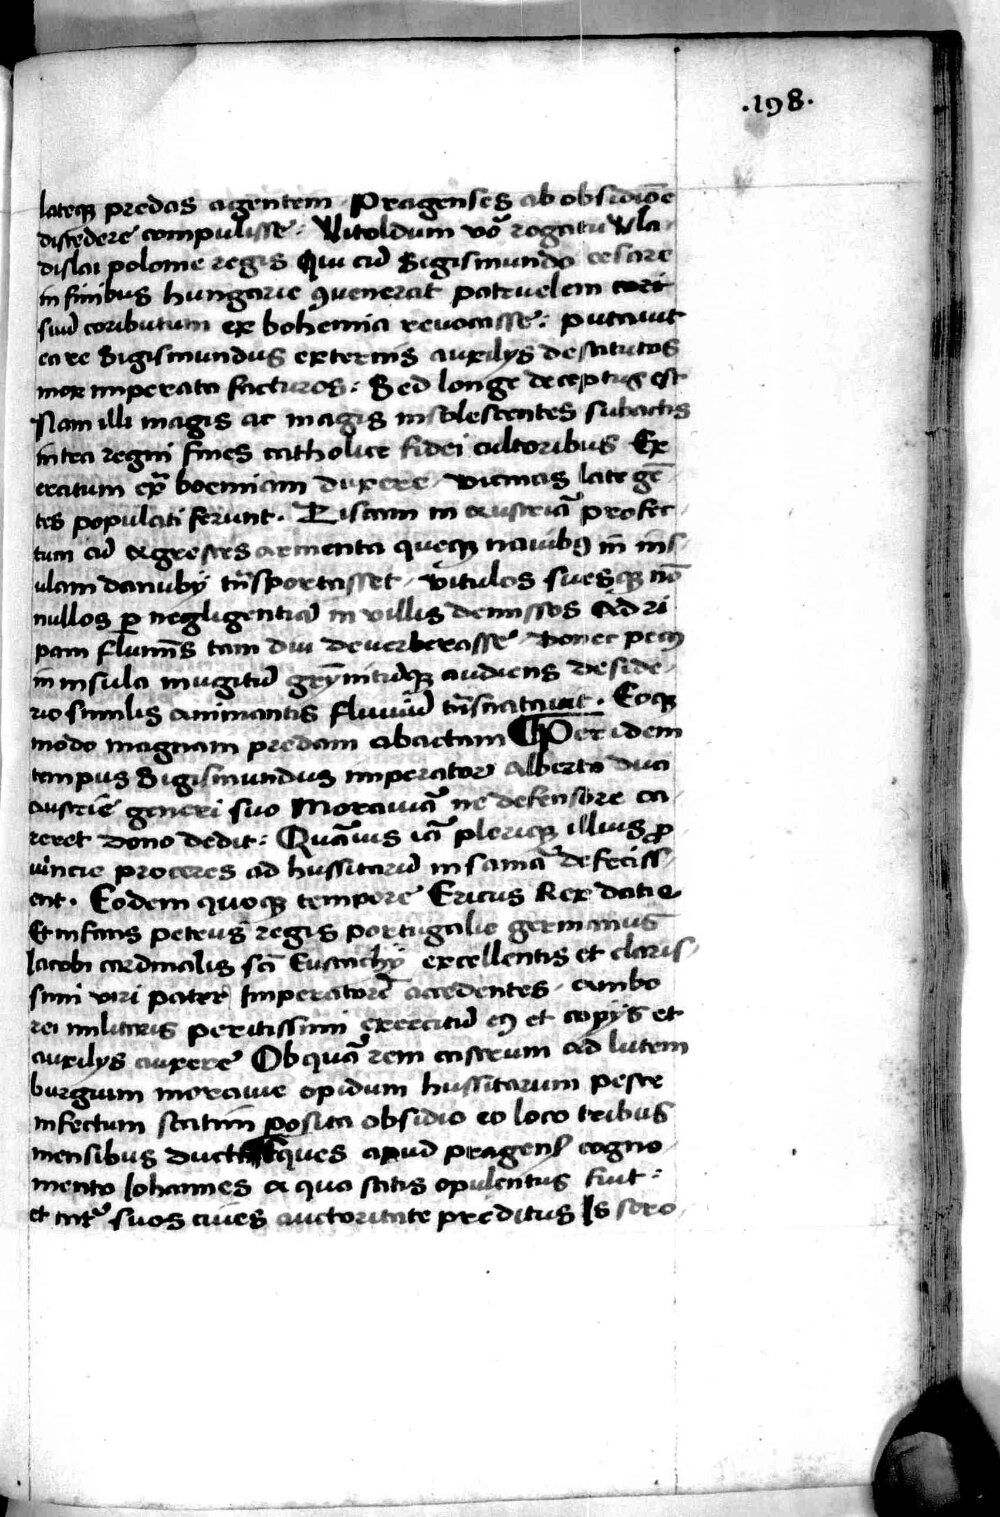 .198.
lateqꝫ predas agentem · Pragenses ab obsidiõe
discedere compulisse · Vitoldum vo᷑ rogatu Vla
dislai polonie regis Qui cũ Sigismundo cesare
in finibus hungarie ꝯuenerat patruelem cori
siue coributum ex bohemia reuocasse : putauit
ea re Sigismundus externis auxilijs destitutos
mox imperata facturos : Sed longe deceptus est
Nam illi magis ac magis insolescentes subactis
intra regni fines catholice fidei cultoribus Ex
ercitum ex̄ boemiam duxere · vicinas late gē
tes populati ferunt · Ziscam in austriã profec
tum cũ agrestes armenta queqꝫ nauibꝫ in ins
ulam danubij tñsportasset · vitulos suesqꝫ nõ
nullos ꝑ negligentiã in villis demissos Ad ri
pam flumĩs tam diu deuerberasse · donec pecꝰ
in insula mugitũ grũnitũqꝫ audiens deside
rio similis animantis fluuiũ tñsnatauit · Eoqꝫ
modo magnam predam abactam ¶ Per idem
tempus Sigismundus imperator Alberto duci
austrie generi suo Morauiã ne defensore ca
reret dono dedit : Quãuis iã pleriqꝫ illius ꝓ
uincie proceres ad hussitarũ insaniã defeciss
ent · Eodem quoqꝫ tempore Ericus Rex datie
Et infans petrus regis portugalie germanus
Iacobi cardinalis sc̃i Eustachij excellentis et claris
simi viri pater Imperatorẽ accedentes · ambo
rei militaris peritissimi exercitũ eꝰ et copijs et
auxilijs auxere Ob quã rem castrum ad lutem
burgum morauie opidum hussitarum peste
infectum statim posita obsidio eo loco tribus
mensibus ducta ques apud pragenẽ cogno
mento Iohannes aqua satis opulentus fuit :
et int᷑ suos ciues auctoritate preditus Is sero